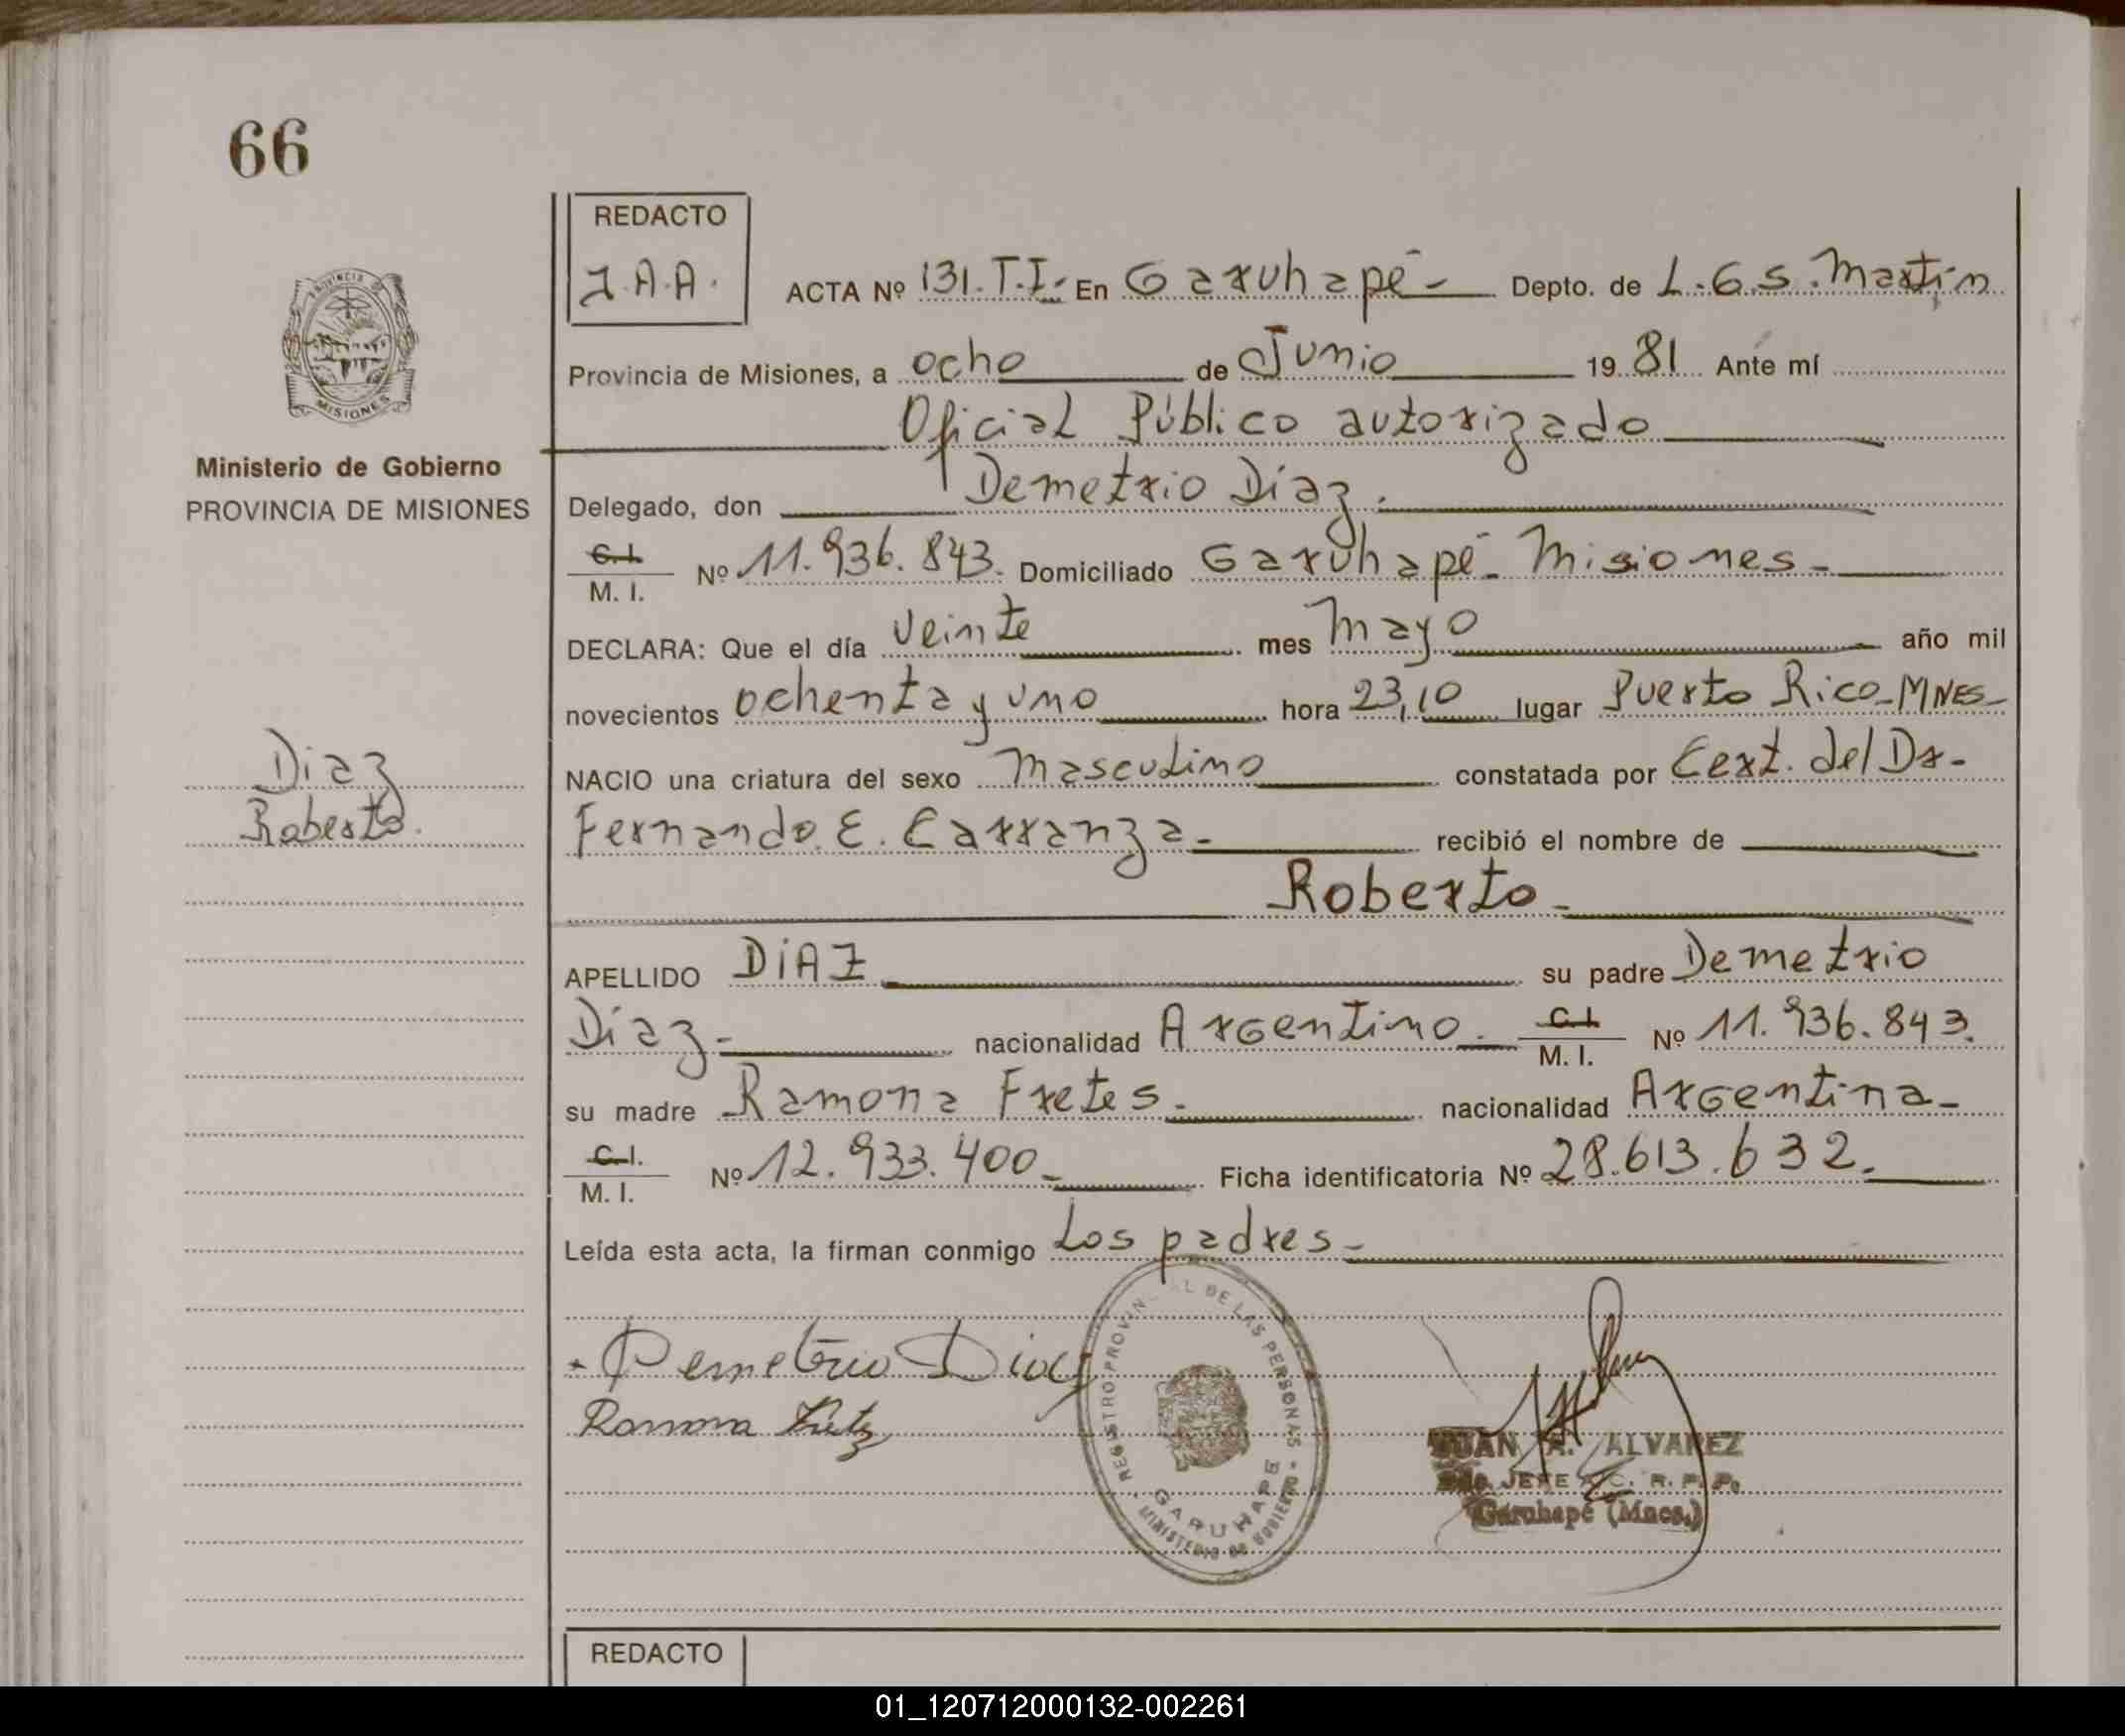 66
REDACTO
J.A.A.
ACTA Nº 131.T.I.- En Garuhapé- Depto. de L.G.S. Martín
Provincia de Misiones, a ocho de Junio 1981 Ante mí
Oficial Público autorizado
Ministerio de Gobierno
PROVINCIA DE MISIONES
Delegado, don Demetrio Díaz.
C.I. M. I. Nº 11.936.843. Domiciliado Garuhapé- Misiones-
DECLARA: Que el día veinte mes mayo año mil
novecientos ochenta y uno hora 23,10 lugar Puerto Rico-MNES-
NACIO una criatura del sexo masculino constatada por Cert. del Dr-
Fernando. E. Carranza- recibió el nombre de
Roberto-
Diaz
Roberto.
APELLIDO DíAZ su padre Demetrio
Díaz- nacionalidad Argentino. C.I. M. I. Nº 11.936.843.
su madre Ramona Fretes- nacionalidad Argentina-
C.I. M. I. Nº 12.933.400- Ficha identificatoria Nº 28.613.632.
Leída esta acta, la firman conmigo Los padres-
Demetrio Diaz
Ramona
REGISTRO PROVINCIAL DE LAS PERSONAS
GARUHAPE
MINISTERIO DE GOBIERNO
JUAN A. ALVAREZ
JEFE R. P. P.
Garuhapé (Mnes.)
REDACTO
01_120712000132-002261